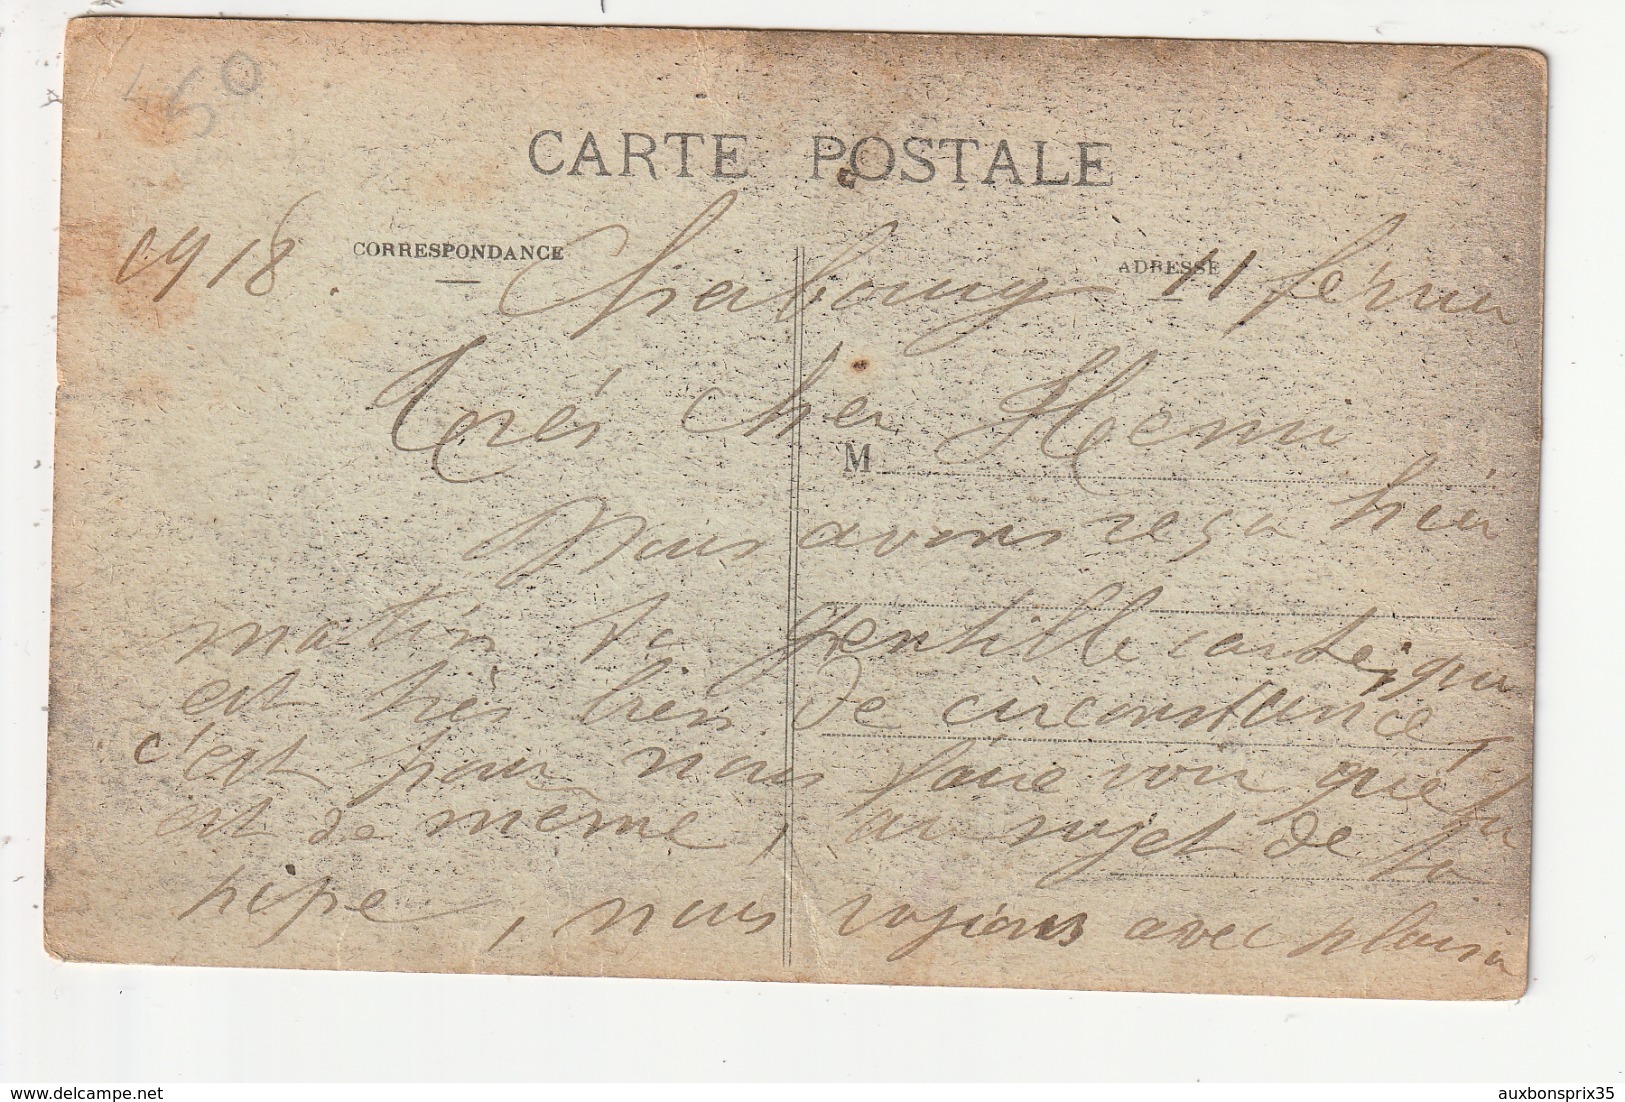 50
CARTE POSTALE
CORRESPONDANCE
ADRESSE
1918. Cherbourg 11 février
Très cher Henri
M
Nous avons reçu hier
matin ta gentille carte, qui
est très bien de circonstance,
c'est pour nous faire voir que tu
est de même, au sujet de ta
pipe, nous voyions avec plaisir
delcampe.net
auxbonsprix35